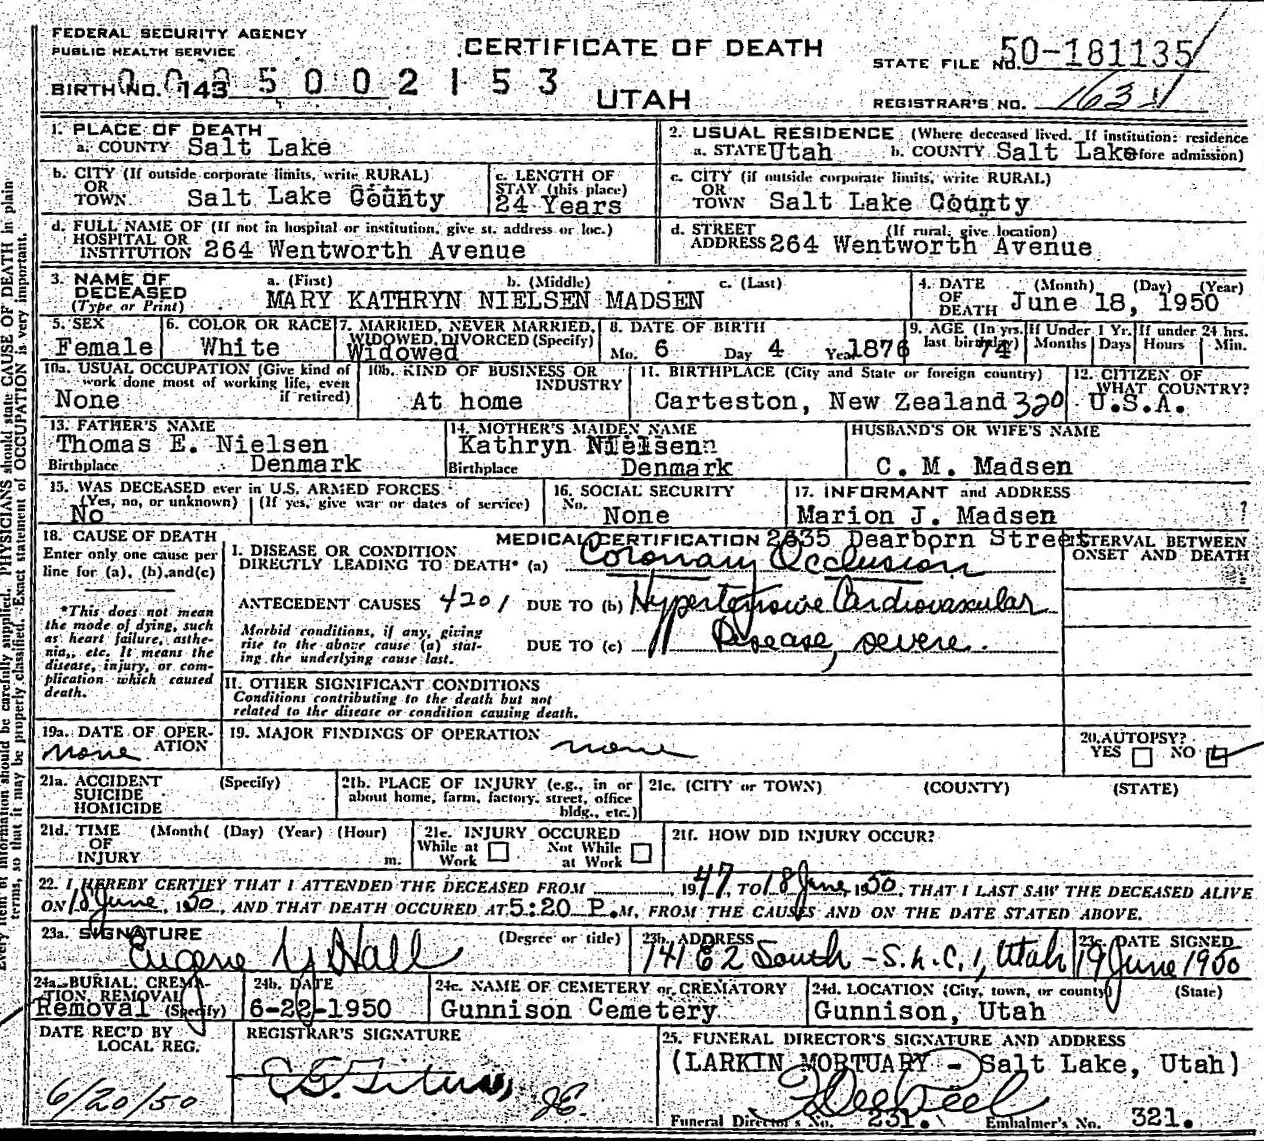 FEDERAL SECURITY AGENCY
PUBLIC HEALTH SERVICE
CERTIFICATE OF DEATH
STATE FILE NO. 50-181135
BIRTH NO. 143
0 0 0 5 0 0 2 1 5 3
UTAH
REGISTRAR'S NO.
1. PLACE OF DEATH
a. COUNTY Salt Lake
2. USUAL RESIDENCE (Where deceased lived. If institution: residence
a. STATE Utah b. COUNTY Salt Lake fore admission)
b. CITY (If outside corporate limits, write RURAL)
OR
TOWN Salt Lake County
c. LENGTH OF
STAY (this place)
24 Years
c. CITY (if outside corporate limits, write RURAL)
OR
TOWN Salt Lake County
d. FULL NAME OF (If not in hospital or institution, give st. address or loc.)
HOSPITAL OR
INSTITUTION 264 Wentworth Avenue
d. STREET (If rural, give location)
ADDRESS 264 Wentworth Avenue
3. NAME OF a. (First) b. (Middle) c. (Last)
DECEASED
(Type or Print) MARY KATHRYN NIELSEN MADSEN
4. DATE (Month) (Day) (Year)
OF
DEATH June 18, 1950
5. SEX
Female
6. COLOR OR RACE
White
7. MARRIED, NEVER MARRIED,
WIDOWED, DIVORCED (Specify)
Widowed
8. DATE OF BIRTH
Mo. 6 Day 4 Year 1876
9. AGE (In yrs.
last birthday) 74
If Under 1 Yr.
Months Days
If under 24 hrs.
Hours Min.
10a. USUAL OCCUPATION (Give kind of
work done most of working life, even
if retired)
None
10b. KIND OF BUSINESS OR
INDUSTRY
At home
11. BIRTHPLACE (City and State or foreign country)
Carteston, New Zealand 320
12. CITIZEN OF
WHAT COUNTRY?
U.S.A.
13. FATHER'S NAME
Thomas E. Nielsen
Birthplace Denmark
14. MOTHER'S MAIDEN NAME
Kathryn Nielsenn
Birthplace Denmark
HUSBAND'S OR WIFE'S NAME
C. M. Madsen
15. WAS DECEASED ever in U.S. ARMED FORCES
(Yes, no, or unknown) (If yes, give war or dates of service)
No
16. SOCIAL SECURITY
No. None
17. INFORMANT and ADDRESS
Marion J. Madsen
2635 Dearborn Street
18. CAUSE OF DEATH
Enter only one cause per
line for (a), (b), and (c)
*This does not mean
the mode of dying, such
as heart failure, asthe-
nia, etc. It means the
disease, injury, or com-
plication which caused
death.
MEDICAL CERTIFICATION
INTERVAL BETWEEN
ONSET AND DEATH
I. DISEASE OR CONDITION
DIRECTLY LEADING TO DEATH* (a) Coronary Occlusion
ANTECEDENT CAUSES 4201 DUE TO (b) Hypertensive Cardiovascular
Morbid conditions, if any, giving
rise to the above cause (a) stat-
ing the underlying cause last.
DUE TO (c) Disease, severe.
II. OTHER SIGNIFICANT CONDITIONS
Conditions contributing to the death but not
related to the disease or condition causing death.
19a. DATE OF OPER-
ATION
none
19. MAJOR FINDINGS OF OPERATION none
20. AUTOPSY?
YES NO
21a. ACCIDENT (Specify)
SUICIDE
HOMICIDE
21b. PLACE OF INJURY (e.g., in or
about home, farm, factory, street, office
bldg., etc.)
21c. (CITY or TOWN) (COUNTY) (STATE)
21d. TIME (Month( (Day) (Year) (Hour)
OF
INJURY m.
21e. INJURY OCCURED
While at Not While
Work at Work
21f. HOW DID INJURY OCCUR?
22. I HEREBY CERTIFY THAT I ATTENDED THE DECEASED FROM , 1947, TO 18 June, 1950, THAT I LAST SAW THE DECEASED ALIVE
ON 18 June, 1950, AND THAT DEATH OCCURED AT 5:20 P.M, FROM THE CAUSES AND ON THE DATE STATED ABOVE.
23a. SIGNATURE (Degree or title)
Eugene Y Hall
23b. ADDRESS
741 E 2 South - S.L.C. 1, Utah
23c. DATE SIGNED
19 June 1950
24a. BURIAL, CREMA-
TION, REMOVAL
Removal (Specify)
24b. DATE
6-22-1950
24c. NAME OF CEMETERY or CREMATORY
Gunnison Cemetery
24d. LOCATION (City, town, or county) (State)
Gunnison, Utah
DATE REC'D BY
LOCAL REG.
6/20/50
REGISTRAR'S SIGNATURE
25. FUNERAL DIRECTOR'S SIGNATURE AND ADDRESS
(LARKIN MORTUARY - Salt Lake, Utah)
Funeral Director's No. 231. Embalmer's No. 321.
PHYSICIANS should state CAUSE OF DEATH in plain
terms, so that it may be properly classified. Exact statement of OCCUPATION is very important.